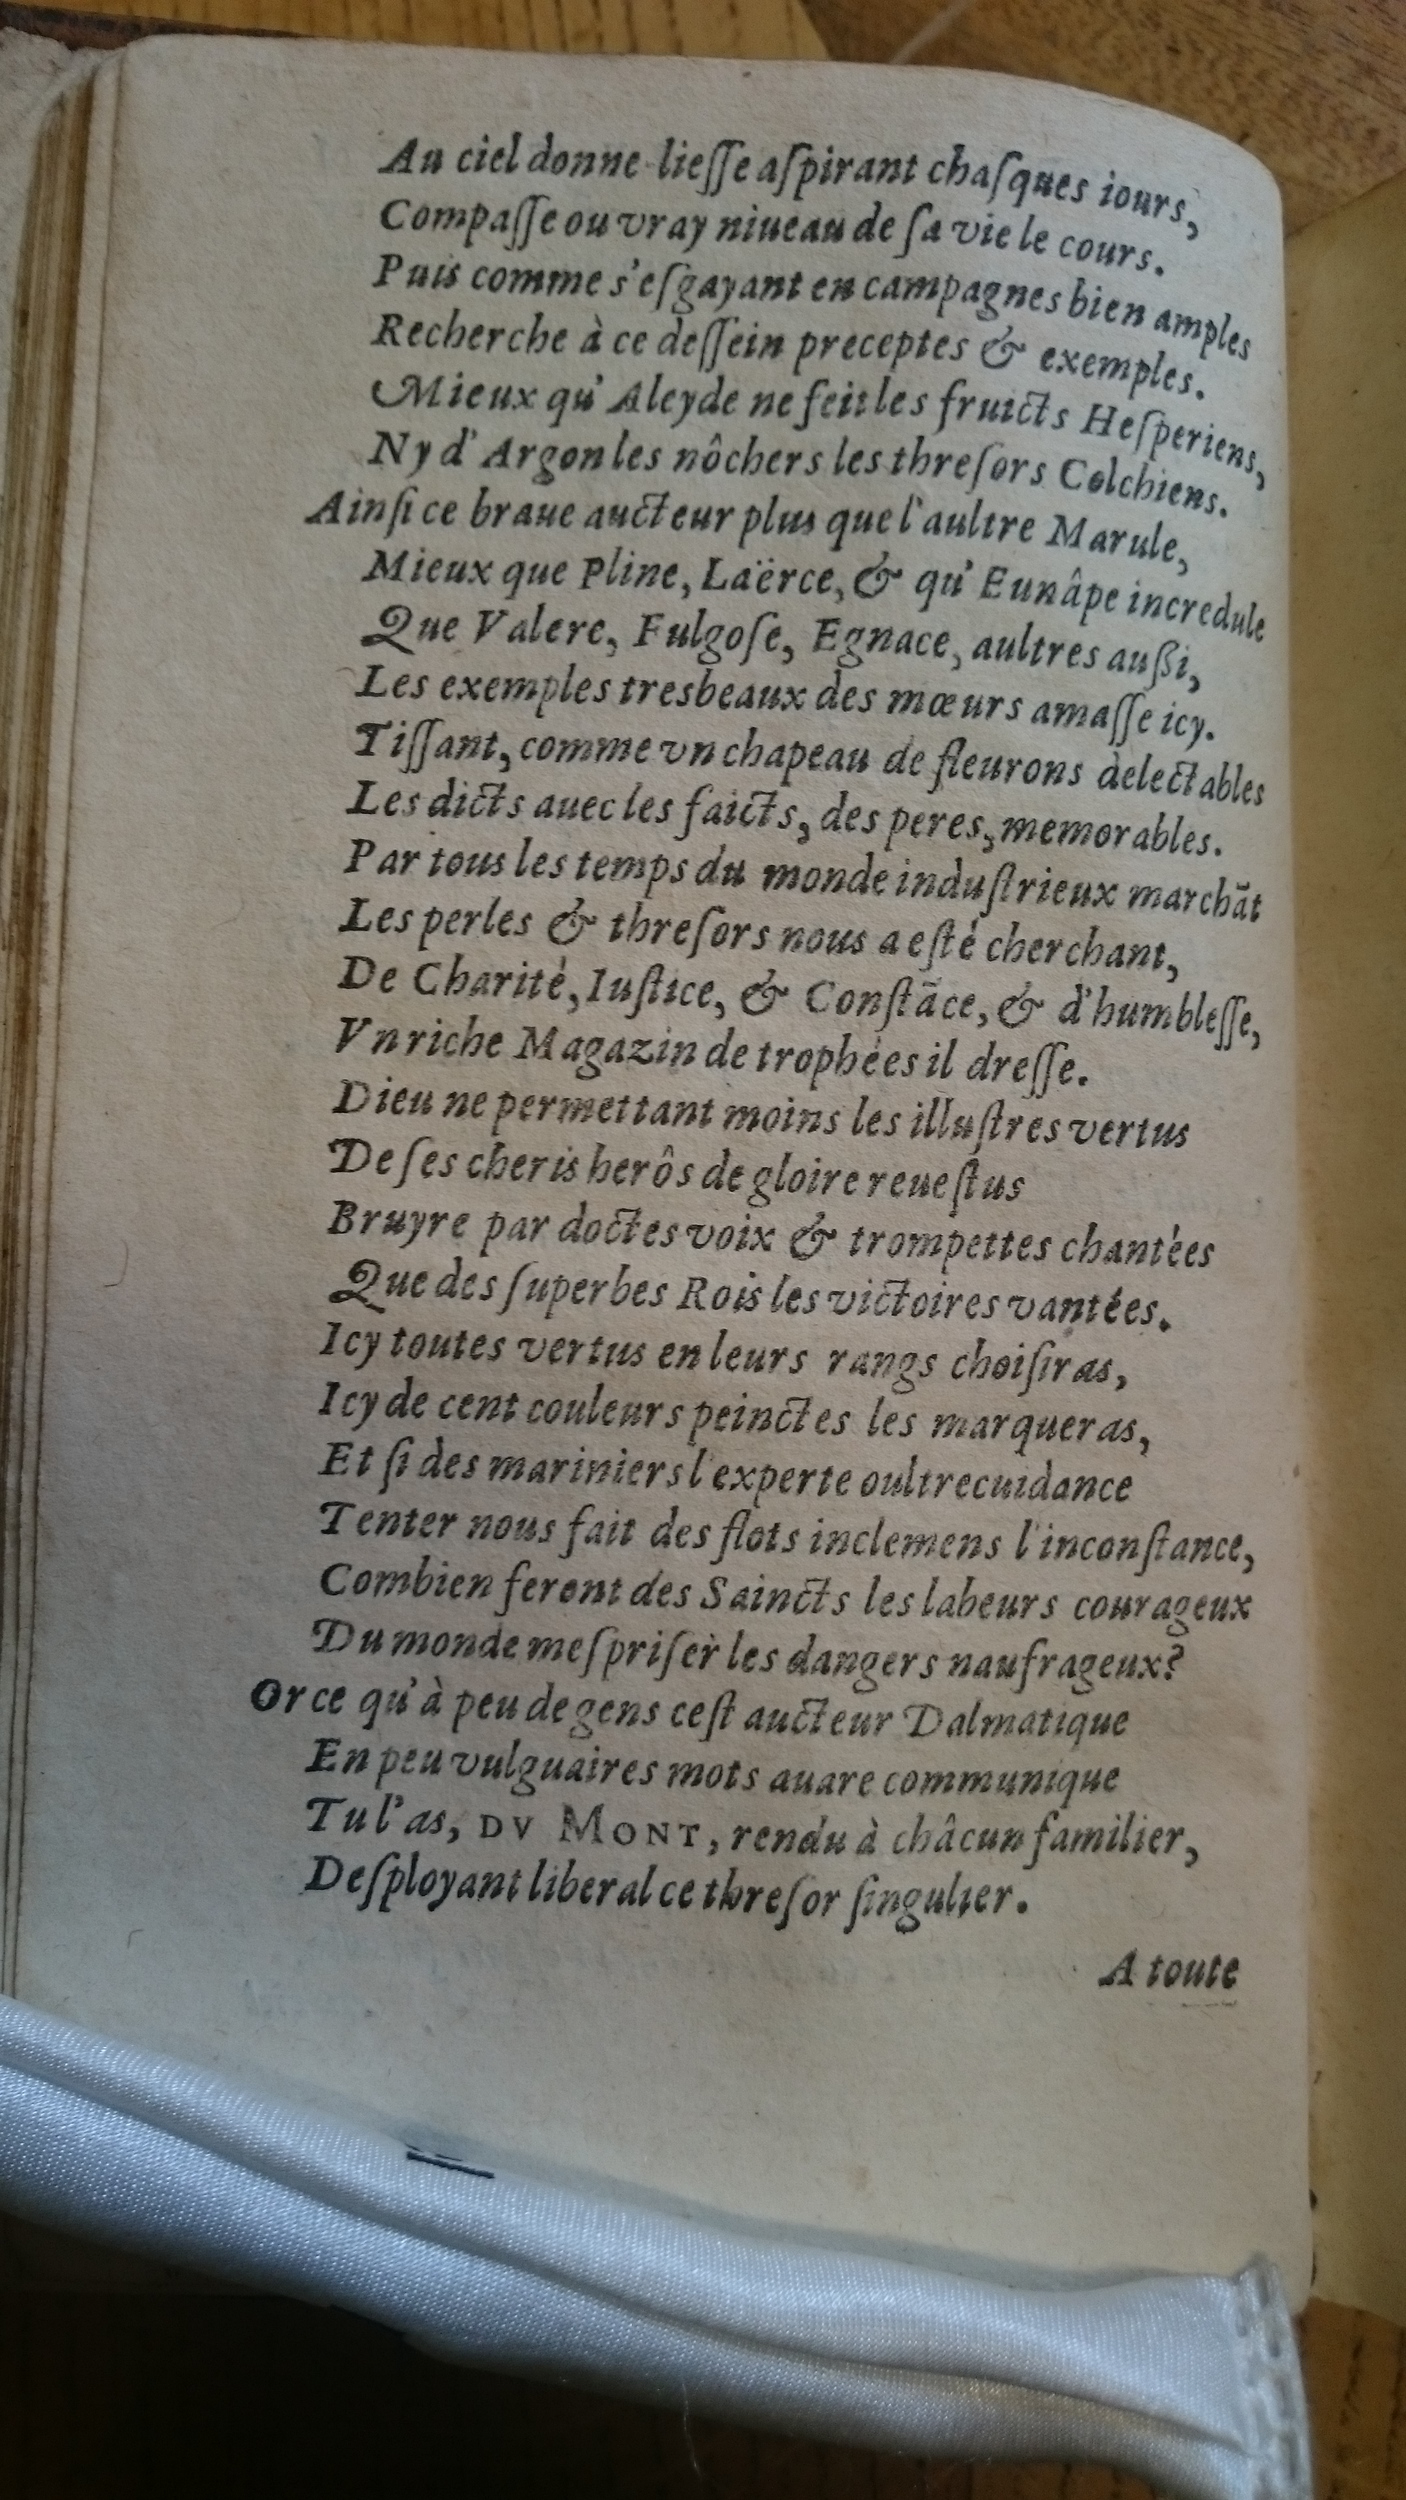 Au ciel donne lieſſe aſpirant chaſques iours,
Compaſſe ou vray niueau de ſa vie le cours.
Puis comme s'eſgayant en campagnes bien amples
Recherche à ce deſſein preceptes & exemples.
Mieux qu' Aleyde ne feit les fruicts Heſperiens,
Ny d' Argon les nôchers les threſors Colchiens.
Ainſi ce braue aucteur plus que l'aultre Marule,
Mieux que Pline, Laërce, & qu' Eunâpe incredule
Que Valere, Fulgoſe, Egnace, aultres außi,
Les exemples tresbeaux des mœurs amaſſe icy.
Tiſſant, comme vn chapeau de fleurons delectables
Les dicts auec les faicts, des peres, memorables.
Par tous les temps du monde induſtrieux marchãt
Les perles & threſors nous a eſté cherchant,
De Charité, Iuſtice, & Conſtãce, & d'humbleſſe,
Vn riche Magazin de trophées il dreſſe.
Dieu ne permettant moins les illuſtres vertus
De ſes cheris herôs de gloire reueſtus
Bruyre par doctes voix & trompettes chantées
Que des ſuperbes Rois les victoires vantées.
Icy toutes vertus en leurs rangs choiſiras,
Icy de cent couleurs peinctes les marqueras,
Et ſi des mariniers l'experte oultrecuidance
Tenter nous fait des flots inclemens l'inconſtance,
Combien feront des Saincts les labeurs courageux
Du monde meſpriſer les dangers naufrageux?
Or ce qu'à peu de gens ceſt aucteur Dalmatique
En peu vulguaires mots auare communique
Tu l'as, DV MONT, rendu à châcun familier,
Deſployant liberal ce threſor ſingulier.
A toute